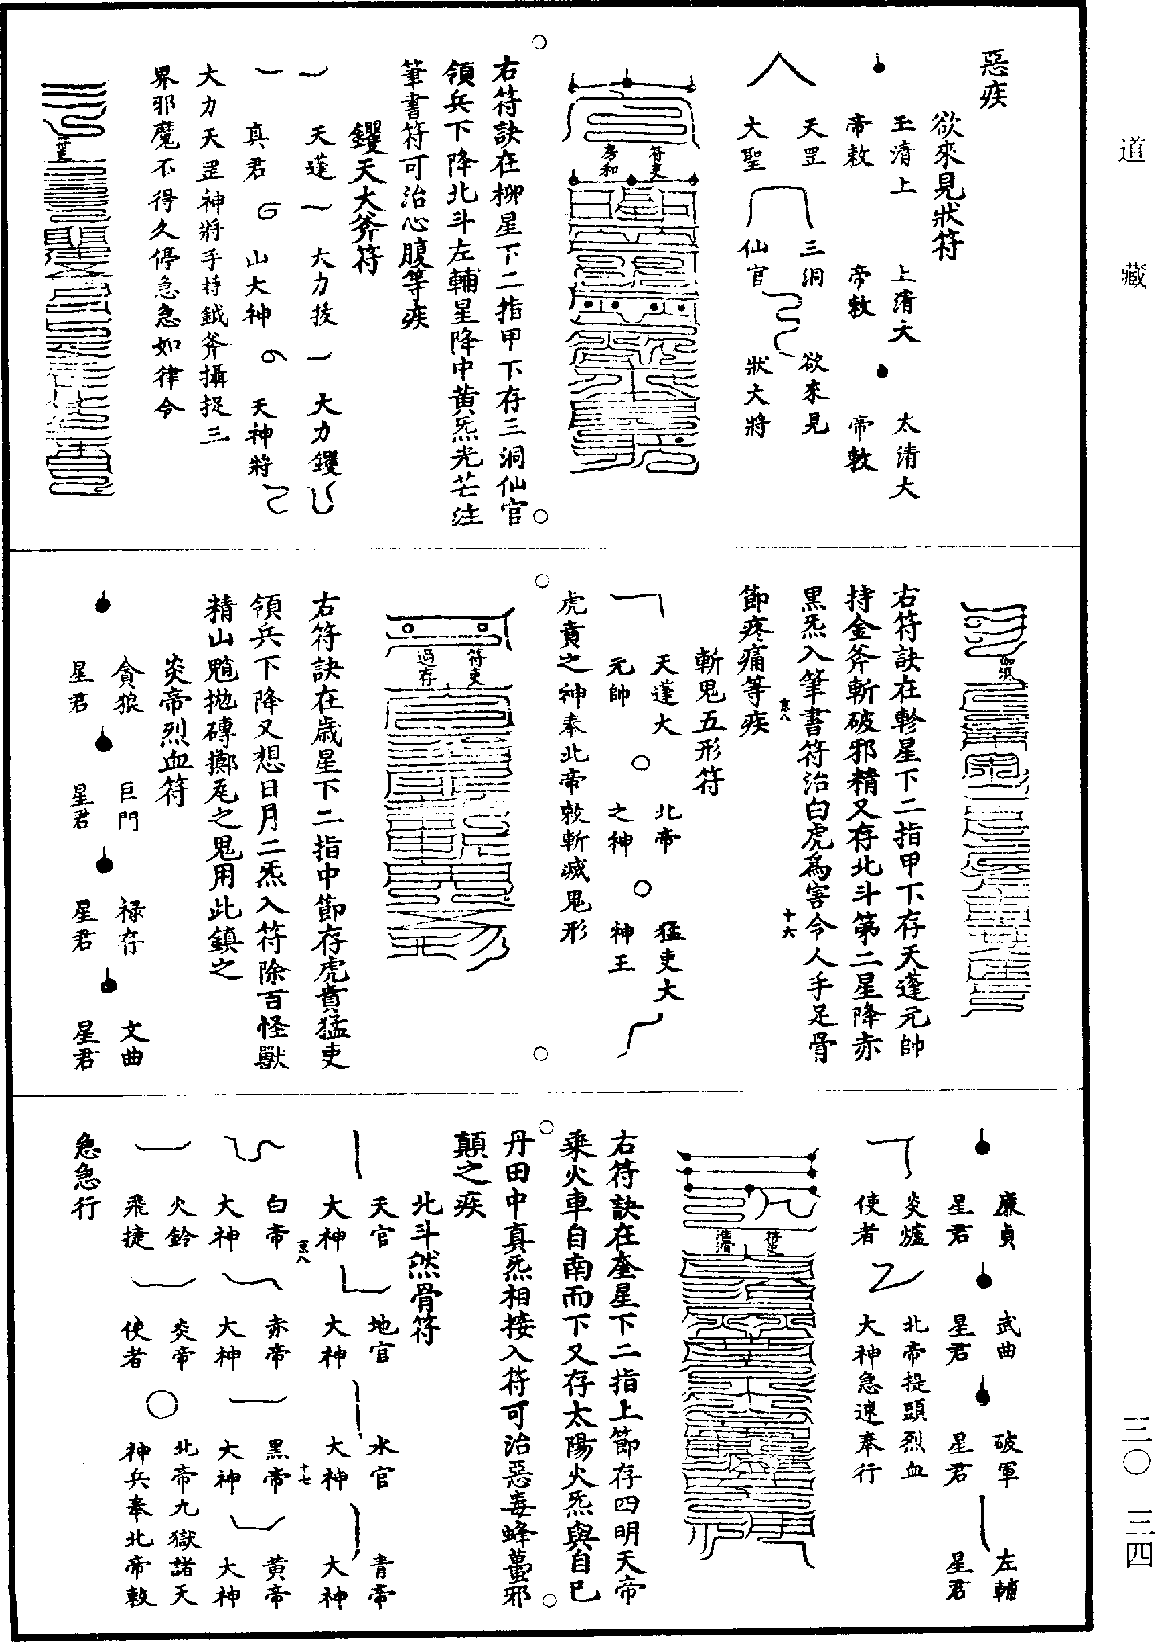 道藏
惡疾
欲來見狀符
玉清上 上清大 太清大
帝敕 帝敕 帝敕
天罡 三洞 欲來見
大聖 仙官 狀大將
符吏
右符訣在柳星下二指甲下存三洞仙官
領兵下降北斗左輔星降中黃炁光芒注
筆書符可治心腹等疾
鑊天大斧符
天蓬 大力按 大力鑊
真君 山大神 天神將
大力天罡神將手持鉞斧攝捉三
界邪魔不得久停急急如律令
右符訣在軫星下二指甲下存天蓬元帥
持金斧斬破邪精又存北斗第二星降赤
黑炁入筆書符治白虎為害令人手足骨
節疼痛等疾
斬鬼五形符
天蓬大 北帝 猛吏大
元帥 之神 神王
虎賁之神奉北帝敕斬滅鬼形
符吏
過存
右符訣在歲星下二指中節存虎賁猛吏
領兵下降又想日月二炁入符除百怪獸
精山魈拋磚擲瓦之鬼用此鎮之
炎帝烈血符
貪狼 巨門 祿存 文曲
星君 星君 星君 星君
廉貞 武曲 破軍 左輔
星君 星君 星君 星君
炎爐 北帝提頭烈血
使者 大神急速奉行
右符訣在奎星下二指上節存四明天帝
乘火車自南而下又存太陽火炁與自己
丹田中真炁相接入符可治惡毒蜂蠆邪
顛之疾
北斗然骨符
天官 地官 水官 青帝
大神 大神 大神 大神
白帝 赤帝 黑帝 黃帝
大神 大神 大神 大神
火鈴 炎帝 北帝九獄諸天
飛捷 使者 神兵奉北帝敕
急急行
十六
十七
三〇 三四